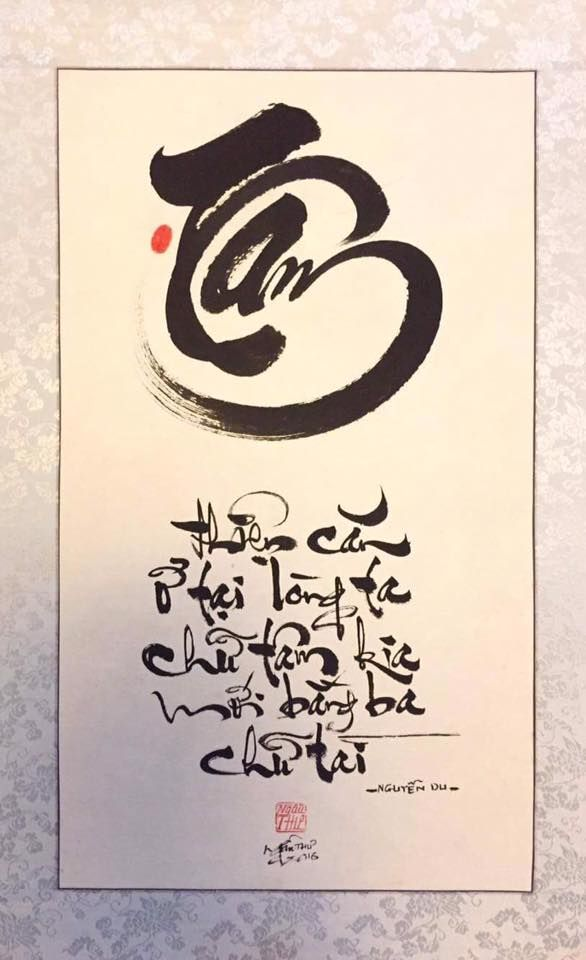 Tâm
thiện căn
ở tại lòng ta
chữ tâm kia
mới bằng ba
chữ tài
- NGUYỄN DU -